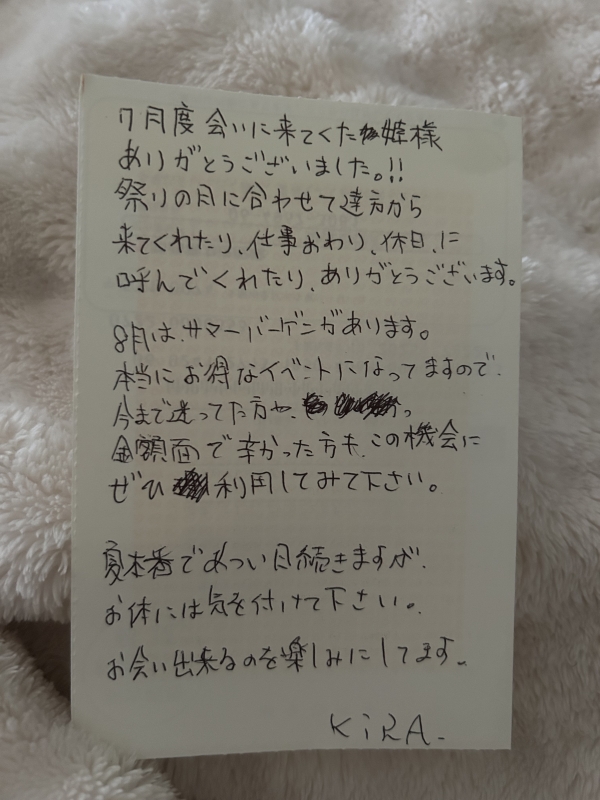 7月度会いに来てくた姫様
ありがとうございました。!!
祭りの月に合わせて遠方から
来てくれたり、仕事おわり、休日、に
呼んでくれたり、ありがとうございます。
8月は、サマーバーゲンがあります。
本当にお得なイベントになってますので、
今まで迷ってた方や、
金額面で辛かった方も、この機会に
ぜひ利用してみて下さい。
夏本番であつい日続きますが、
お体には気を付けて下さい。
お会い出来るのを楽しみにしてます。
KiRA.